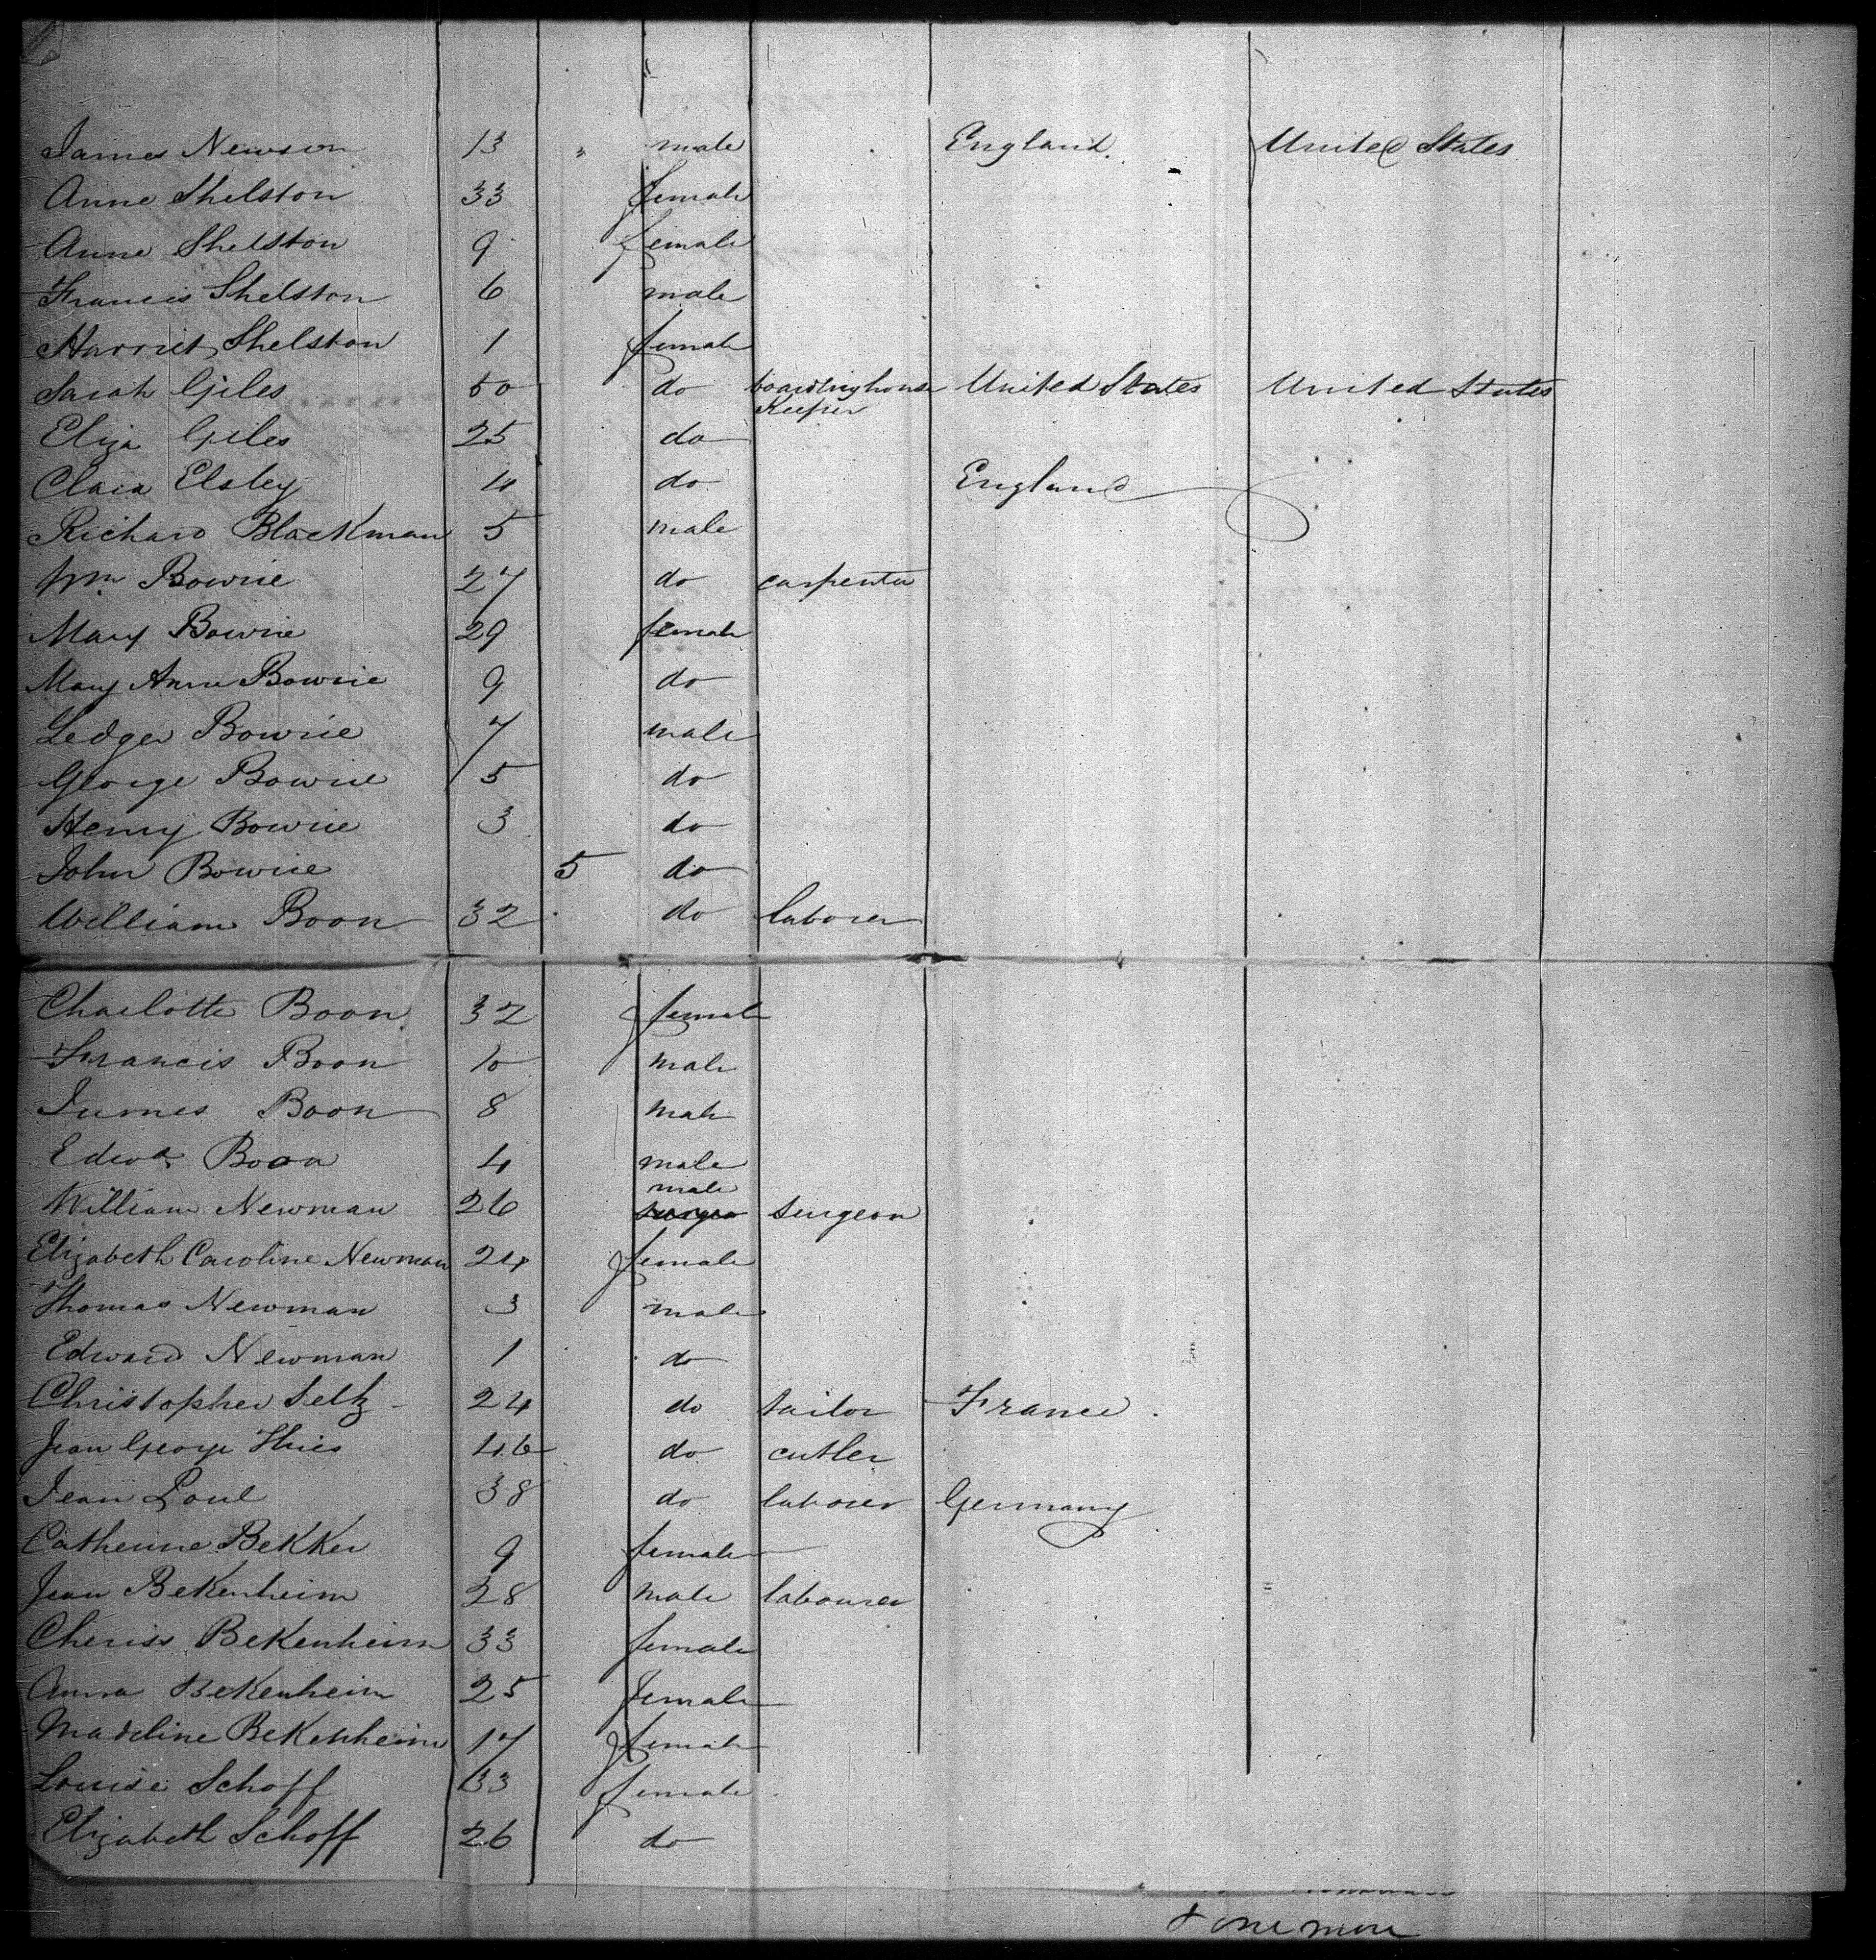 James Newson 13 " male England. United States
Anne Shelston 33 female
Anne Shelston 9 female
Francis Shelston 6 male
Harriet Shelston 1 female
Sarah Giles 50 do boardinghouse United States United States
Keeper
Eliza Giles 25 do
Clara Elsley 4 do England
Richard Blackman 5 male
Wm Bowrie 27 do carpenter
Mary Bowrie 29 female
Mary Anne Bowrie 9 do
Ledger Bowrie 7 male
George Bowrie 5 do
Henry Bowrie 3 do
John Bowrie 5 do
William Boon 32 do laborer
Charlotte Boon 32 female
Francis Boon 10 male
James Boon 8 male
Edwd Boon 4 male
male
William Newman 26 surgeon
Elizabeth Caroline Newman 24 female
Thomas Newman 3 male
Edward Newman 1 do
Christopher Seltz 24 do tailor France.
Jean George Thies 46 do cutler
Jean Poul 38 do laborer Germany
Catherine Bekker 9 female
Jean Bekenheim 28 male labourer
Cheriss Bekenheim 33 female
Anna Bekenheim 25 female
Madeline Bekenheim 17 female
Louise Schoff 33 female
Elizabeth Schoff 26 do
one more